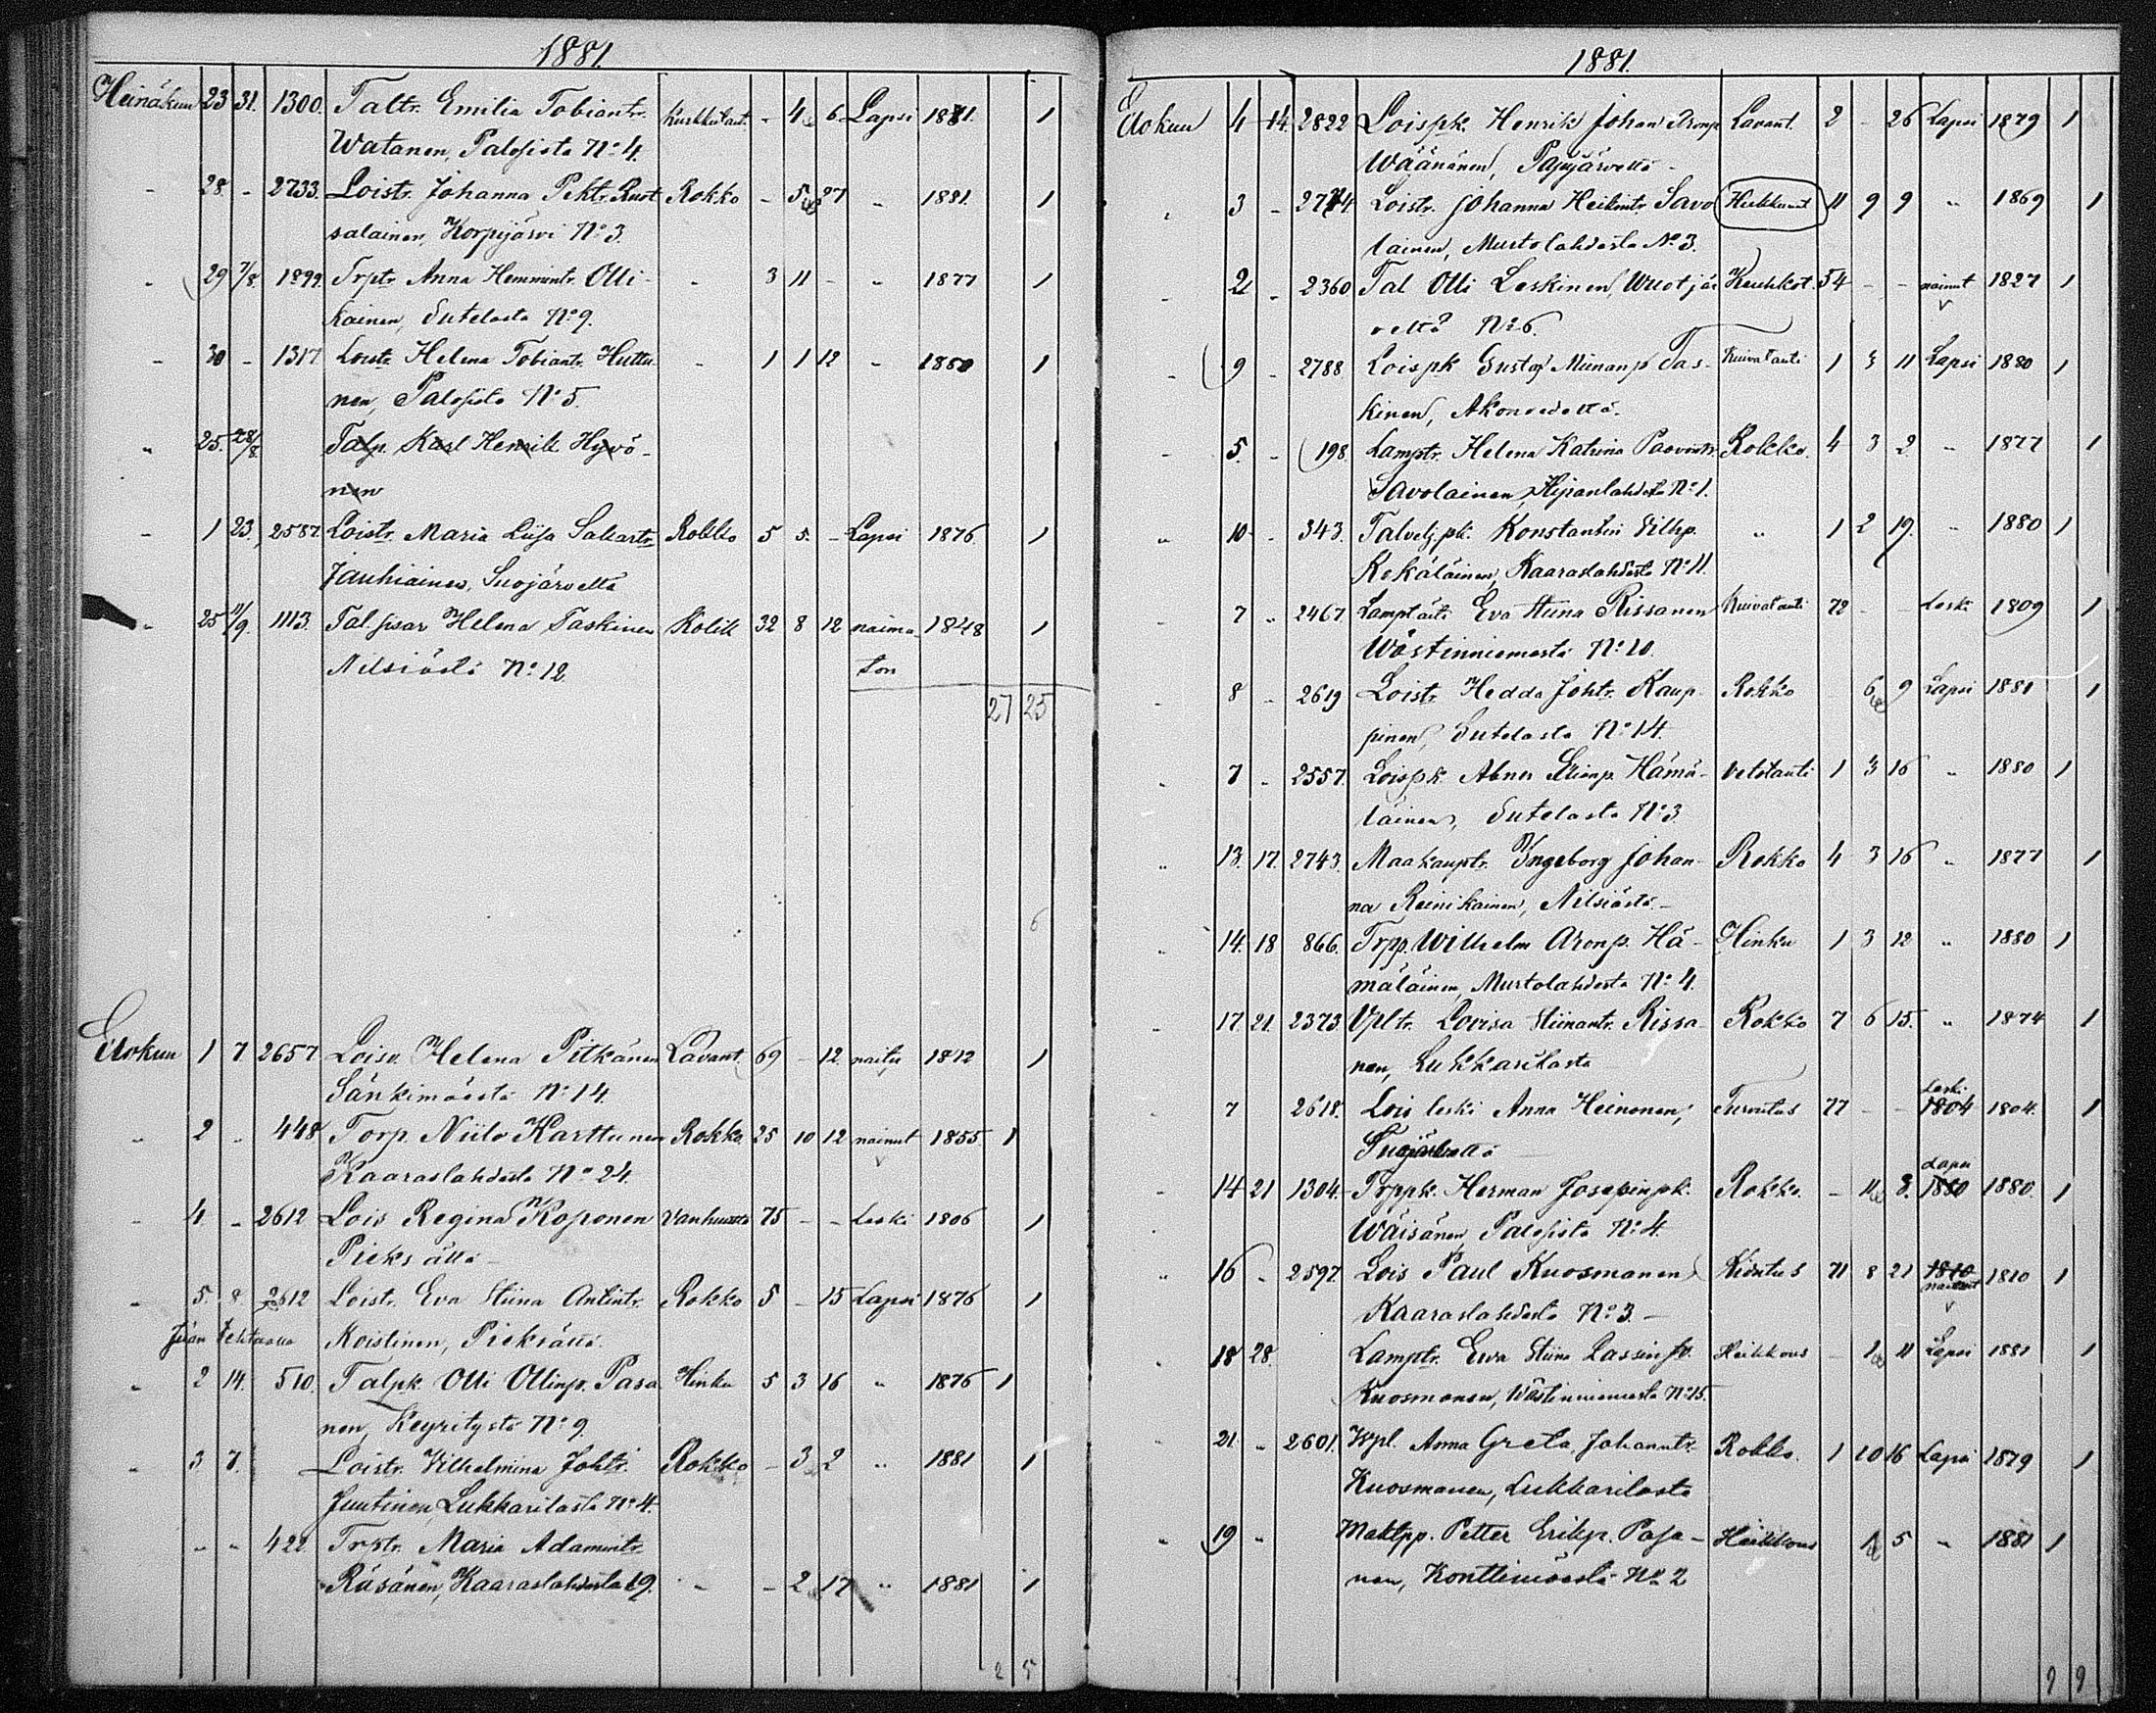 1881.
Heinäkun 23 31. 1300. Taltr. Emilia Tobiantr. Kurkkutaut. - 4 6 Lapsi 1881. 1
Watanen, Palosista No 4.
" 28. - 2733. Loistr. Johanna Pehtr. Ruot Rokko - 5 27 " 1881. 1
salainen, Korpijärvi No 3.
" 29 7/8. 1899. Trptr. Anna Hemmintr. Olli- " 3 11 - " 1877 1
kainen, Sutelasta No 9.
" 30 - 1317 Loistr. Helena Tobiantr. Huttu- " 1 1 12 " 1880 1
nen, Palosista No 5.
" 25. 28/8. Talp. Karl Henrik Hyvö-
nen
" 1 23. 2587. Loistr. Maria Liisa Sakartr. Rokko 5 5. - Lapsi 1876 1
Jauhiainen, Suojärveltä
" 25 11/9. 1113. Tal. psar Helena Taskinen Kolik 32 8 12 naima- 1848 1
Nilsiästä No 12. ton
27 25
6
Elokuu 1 7 2657 Loisv. Helena Pitkänen Lavant. 69 - 12. naitu 1812 1
Sänkimäestä No 14.
" 2 " 448 Torp. Niilo Karttunen Rokko. 25 10 12 nainut 1855 1
Kaaraslahdesta No 24.
" 4. - 2612 Lois Regina Koponen Vanhuus 75 - - Leski 1806 1
Pieksältä -
" 5. 8. 2612 Loistr. Eva Stiina Antintr. Rokko 5 - 15 Lapsi 1876 1
Koistinen, Pieksältä.
" 2 14. 510. Talpk. Olli Ollinp. Pasa Hinku 5 3 16 " 1876 1
nen, Keyritystä No 9.
" 3. 7. Loistr. Vilhelmina Johtr. Rokko - 3 2 " 1881 1
Juutinen, Lukkarilasta No 4.
" " 422. Trptr. Maria Adamintr.
Räsänen, Kaaraslahdesta 19. " - 2 17 " 1881 1
2 5
1881.
Elokuu 4 14. 2822 Loispk. Henrik Johan Aronp Lavant. 2 - 26 Lapsi 1879 1
Wäänänen, Pajujärveltä -
" 3 - 2744 Loistr. Johanna Heikintr. Savo Heikkout 11 9 9 " 1869 1
lainen, Murtolahdesta No 3.
" 2 - 2360 Tal Olli Leskinen, Wuotjär Keuhkot. 54 - - nainut 1827 1
veltä No 6.
" 9 - 2788 Loispk Gustaf Miinanp Tas- Kuivatauti 1 3 11 Lapsi 1880 1
kinen, Akonvedeltä.
" 5. - 198. Lamptr. Helena Katrina Paavintr. Rokko. 4 3 2 " 1877 1
Savolainen, Hipanlahdesta No 1.
" 10 - 343. Talvelj.pk. Konstantin Vilhp. " 1 2 19. " 1880 1
Kekäläinen, Kaaraslahdesta No 11.
" 7 " 2467. Lamptäti Eva Stiina Rissanen Kuivatauti 72 - - Leski 1809 1
Wästinniemestä No 10.
" 8 - 2619 Loistr. Hedda Johtr. Kaup- Rokko 6 9 Lapsi 1881 1
pinen, Sutelasta No 14.
" 7 - 2557. Loispk Abner Hämä- Vetotauti 1 3 16 " 1880 1
läinen, Sutelasta No 3
" 13. 17. 2743. Maakauptr. Ingeborg Johan- Rokko 4 3 16 " 1877 1
na Reinikainen, Nilsiästä -
" 14. 18 866. Trpp. Wilhelm Aronp. Hä- Hinku 1 3 12 " 1880 1
mäläinen, Murtolahdesta No 4.
" 17 21. 2373. Vpltr. Lovisa Stiinantr. Rissa- Rokko 7 6 15. " 1874 1
nen, Lukkarilasta
" 7 2618. Lois leski Anna Heinonen, Turvutus 77 - - Leski 1804 1804. 1
Suojärveltä
" 14 21 1304. Trppk. Herman Josepinpk. Rokko. - 11 8. Lapsi 1880 1880. 1
Wäisänen, Palosista No 4.
" 16 " 2597 Lois Paul Kuosmanen 71 8 21 1810 nainut 1810 1
Kaaraslahdesta No 3. -
" 18 28. Lamptr. Ewa Stiina Lassintr. Heikkous - 1 11 Lapsi 1881 1
Kuosmanen, Wästinniemestä No 15.
" 21. " 2601. Wpl. Anna Greta Johantr. Rokko. 1 10 16 Lapsi 1879 1
Kuosmanen, Lukkarilasta
" 19 " Maktpp. Petter Erikp. Pasa- Heikkous 1 5 " 1881 1
nen, Konttimäestä No 2
9 9